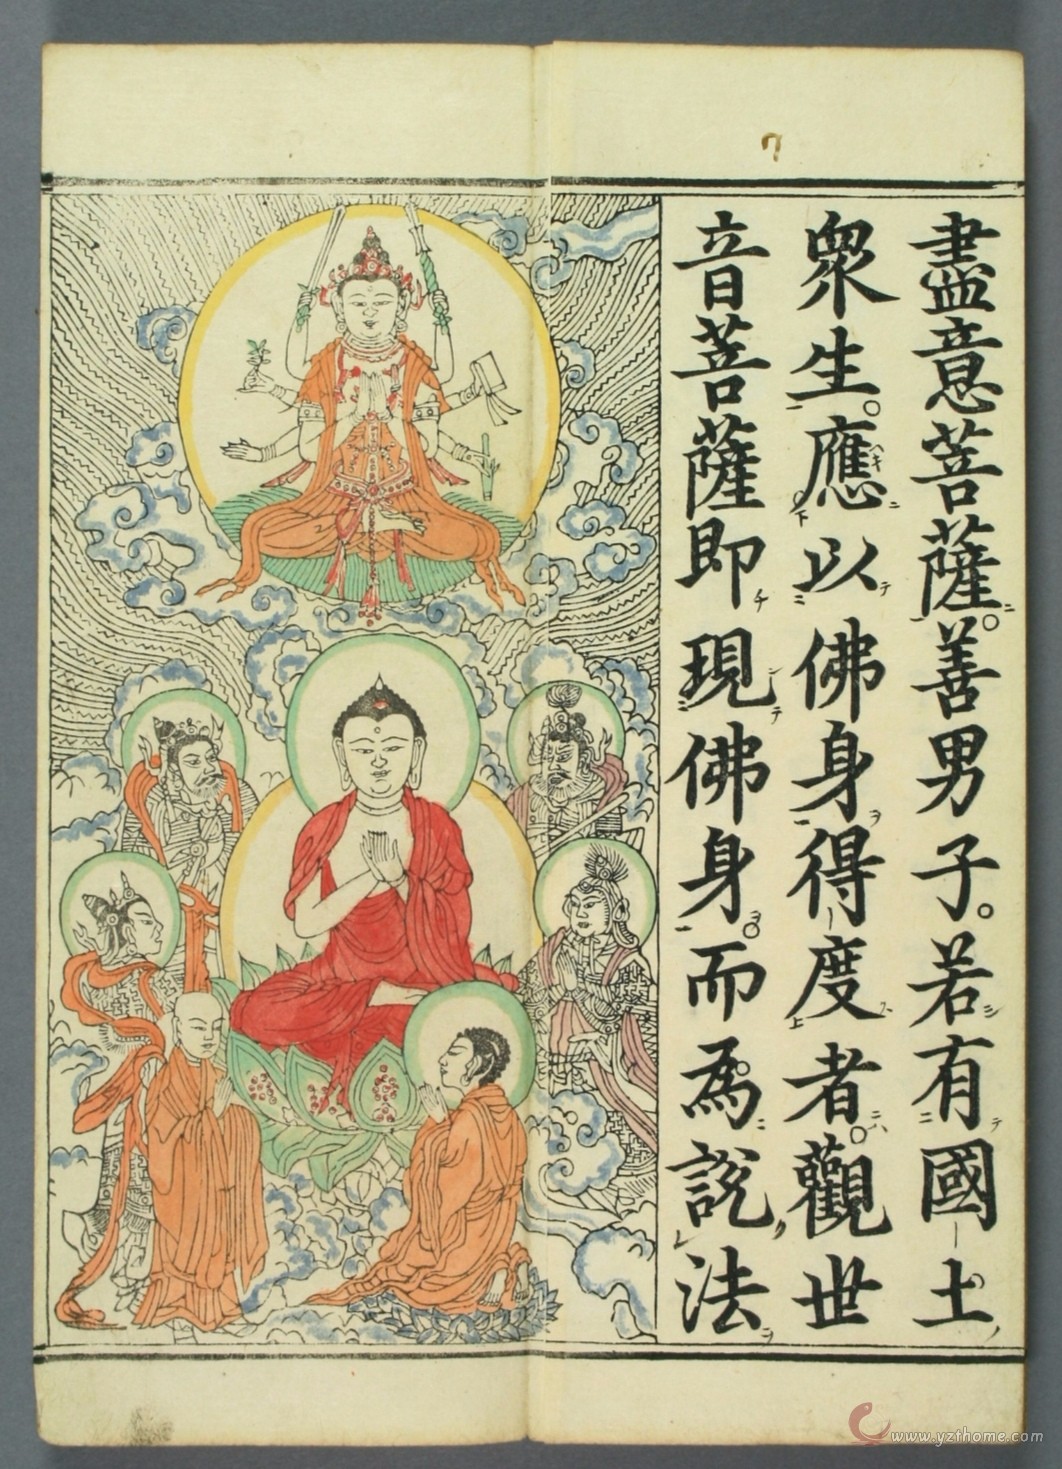 盡意菩薩。善男子。若有國土
眾生。應以佛身得度者。觀世
音菩薩即現佛身。而為說法
www.yzthome.com